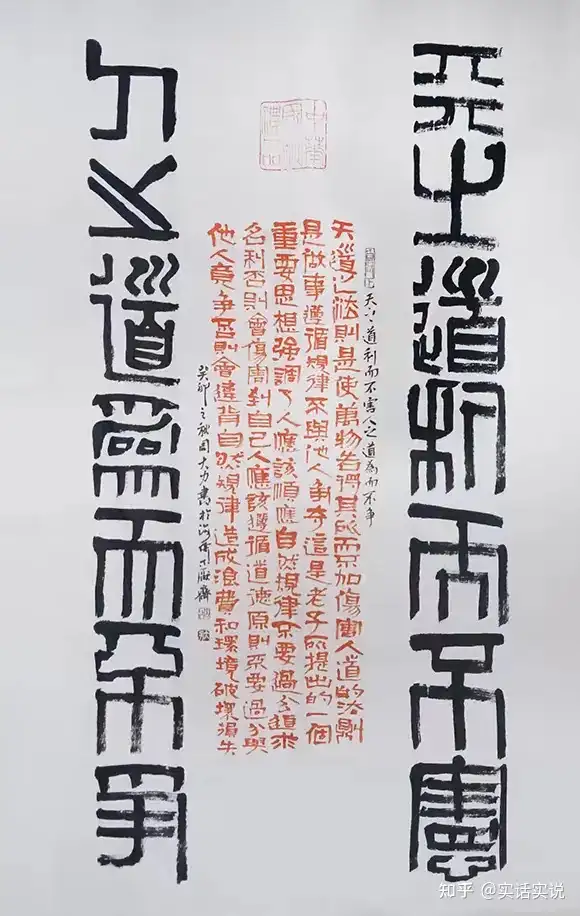 天之道利而不害
天之道利而不害人之道為而不爭
中華
天道之法則是使萬物各得其所而不加傷害人道的法則
是做事遵循規律不與他人爭奪這是老子所提出的一個
重要思想強調了人應該順應自然規律不要過分追求
名利否則會傷害到自己人應該遵循道德原則不要過分與
他人竟爭否則會違背自然規律造成浪費和環境破壞損失
癸卯之秋周大力書於
人之道為而不爭
知乎 @实话实说